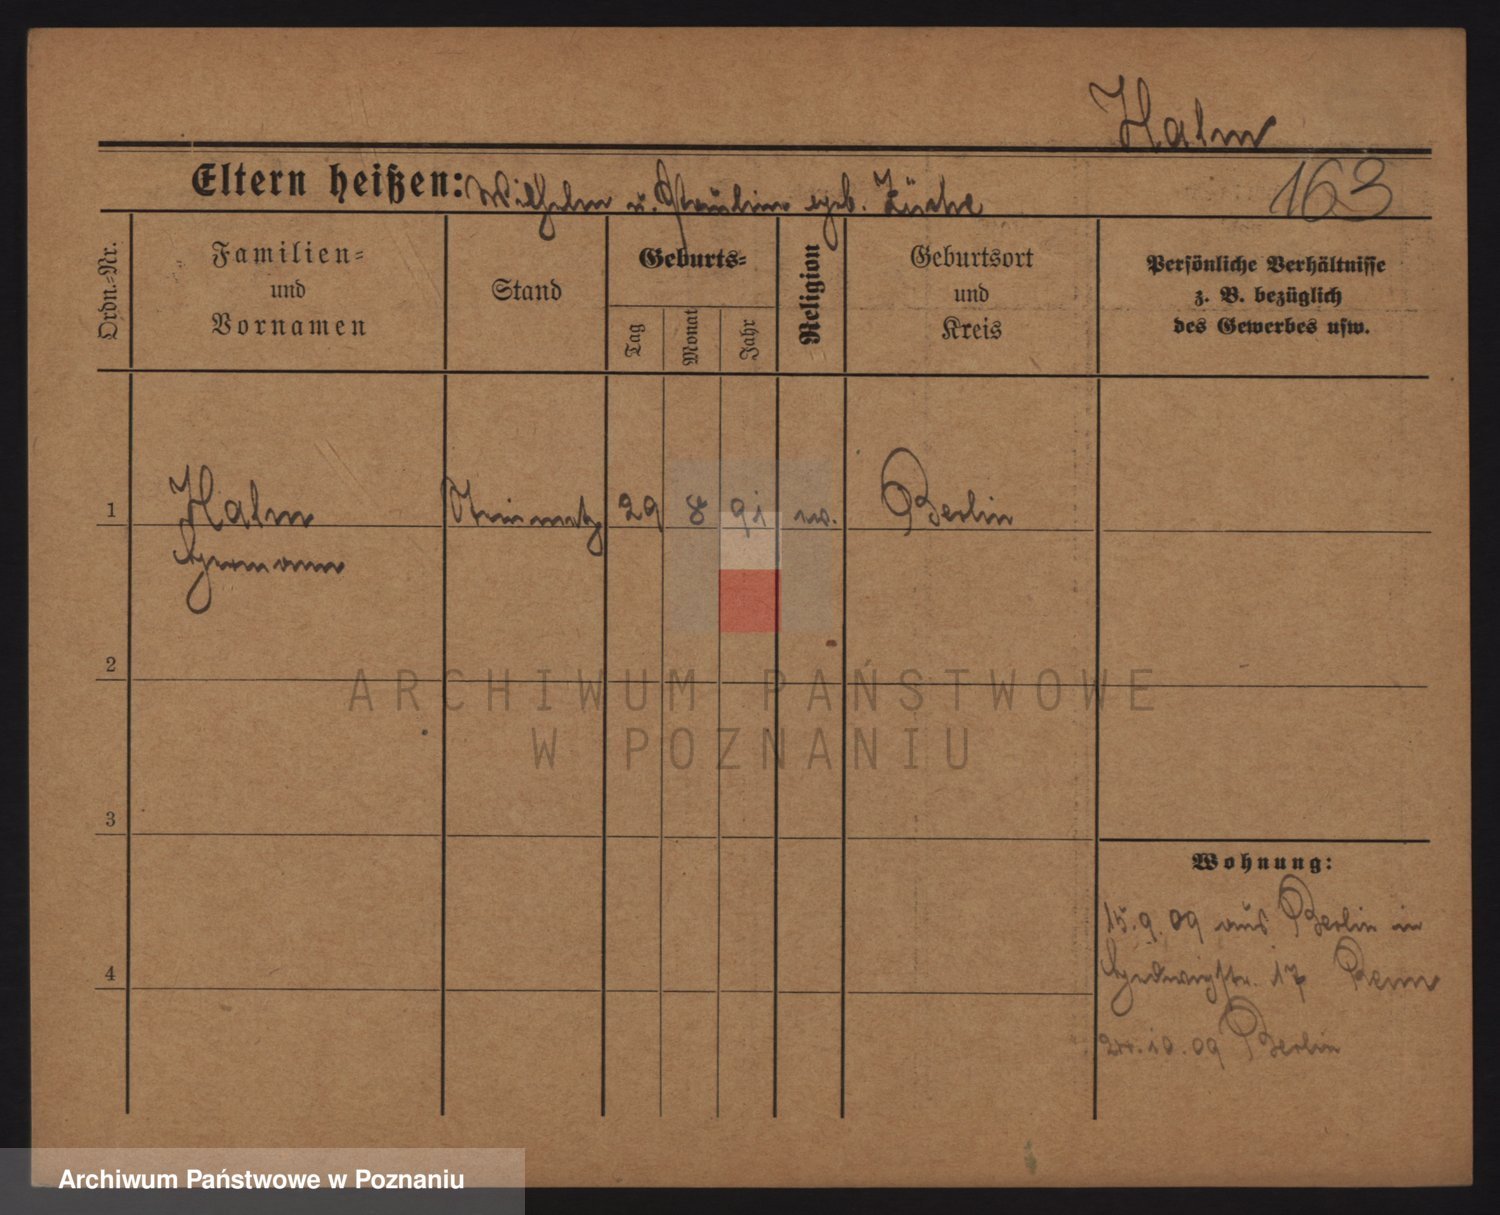 Halm
163
Eltern heißen: Wilhelm u. Pauline geb.
Ordn.-Nr.
Familien-
und
Vornamen
Stand
Geburts-
Tag
Monat
Jahr
Religion
Geburtsort
und
Kreis
Persönliche Verhältnisse
z. B. bezüglich
des Gewerbes usw.
1 Halm Steinmetz 29 8 91 ev. Berlin
Hermann
2
ARCHIWUM PAŃSTWOWE
W POZNANIU
3
Wohnung:
15.9.09 aus Berlin in
4
Hedwigstr. 17
24.10.09 Berlin
Archiwum Państwowe w Poznaniu